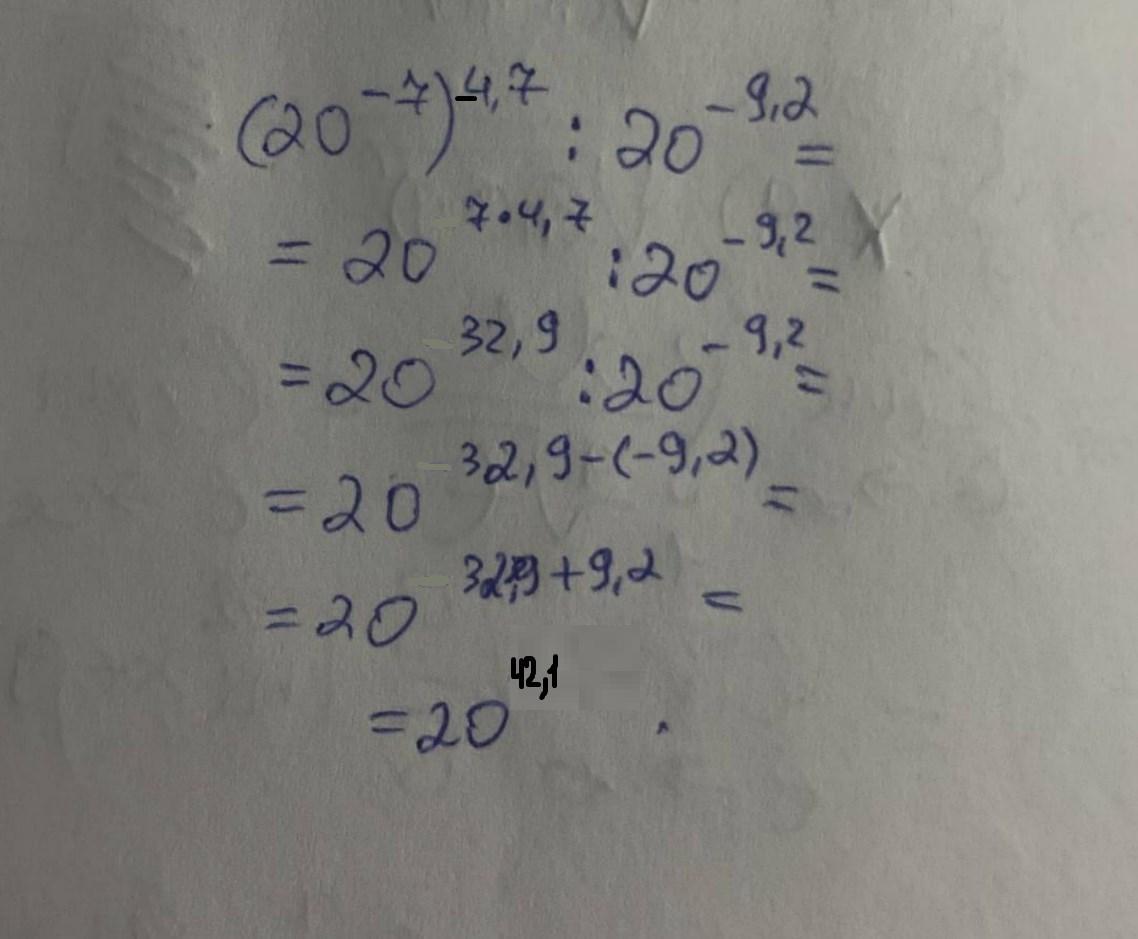 (20^-7)^-4,7 : 20^-9,2 =
= 20^7·4,7 : 20^-9,2 =
= 20^32,9 : 20^-9,2 =
= 20^32,9-(-9,2) =
= 20^32,9+9,2 =
= 20^42,1 .